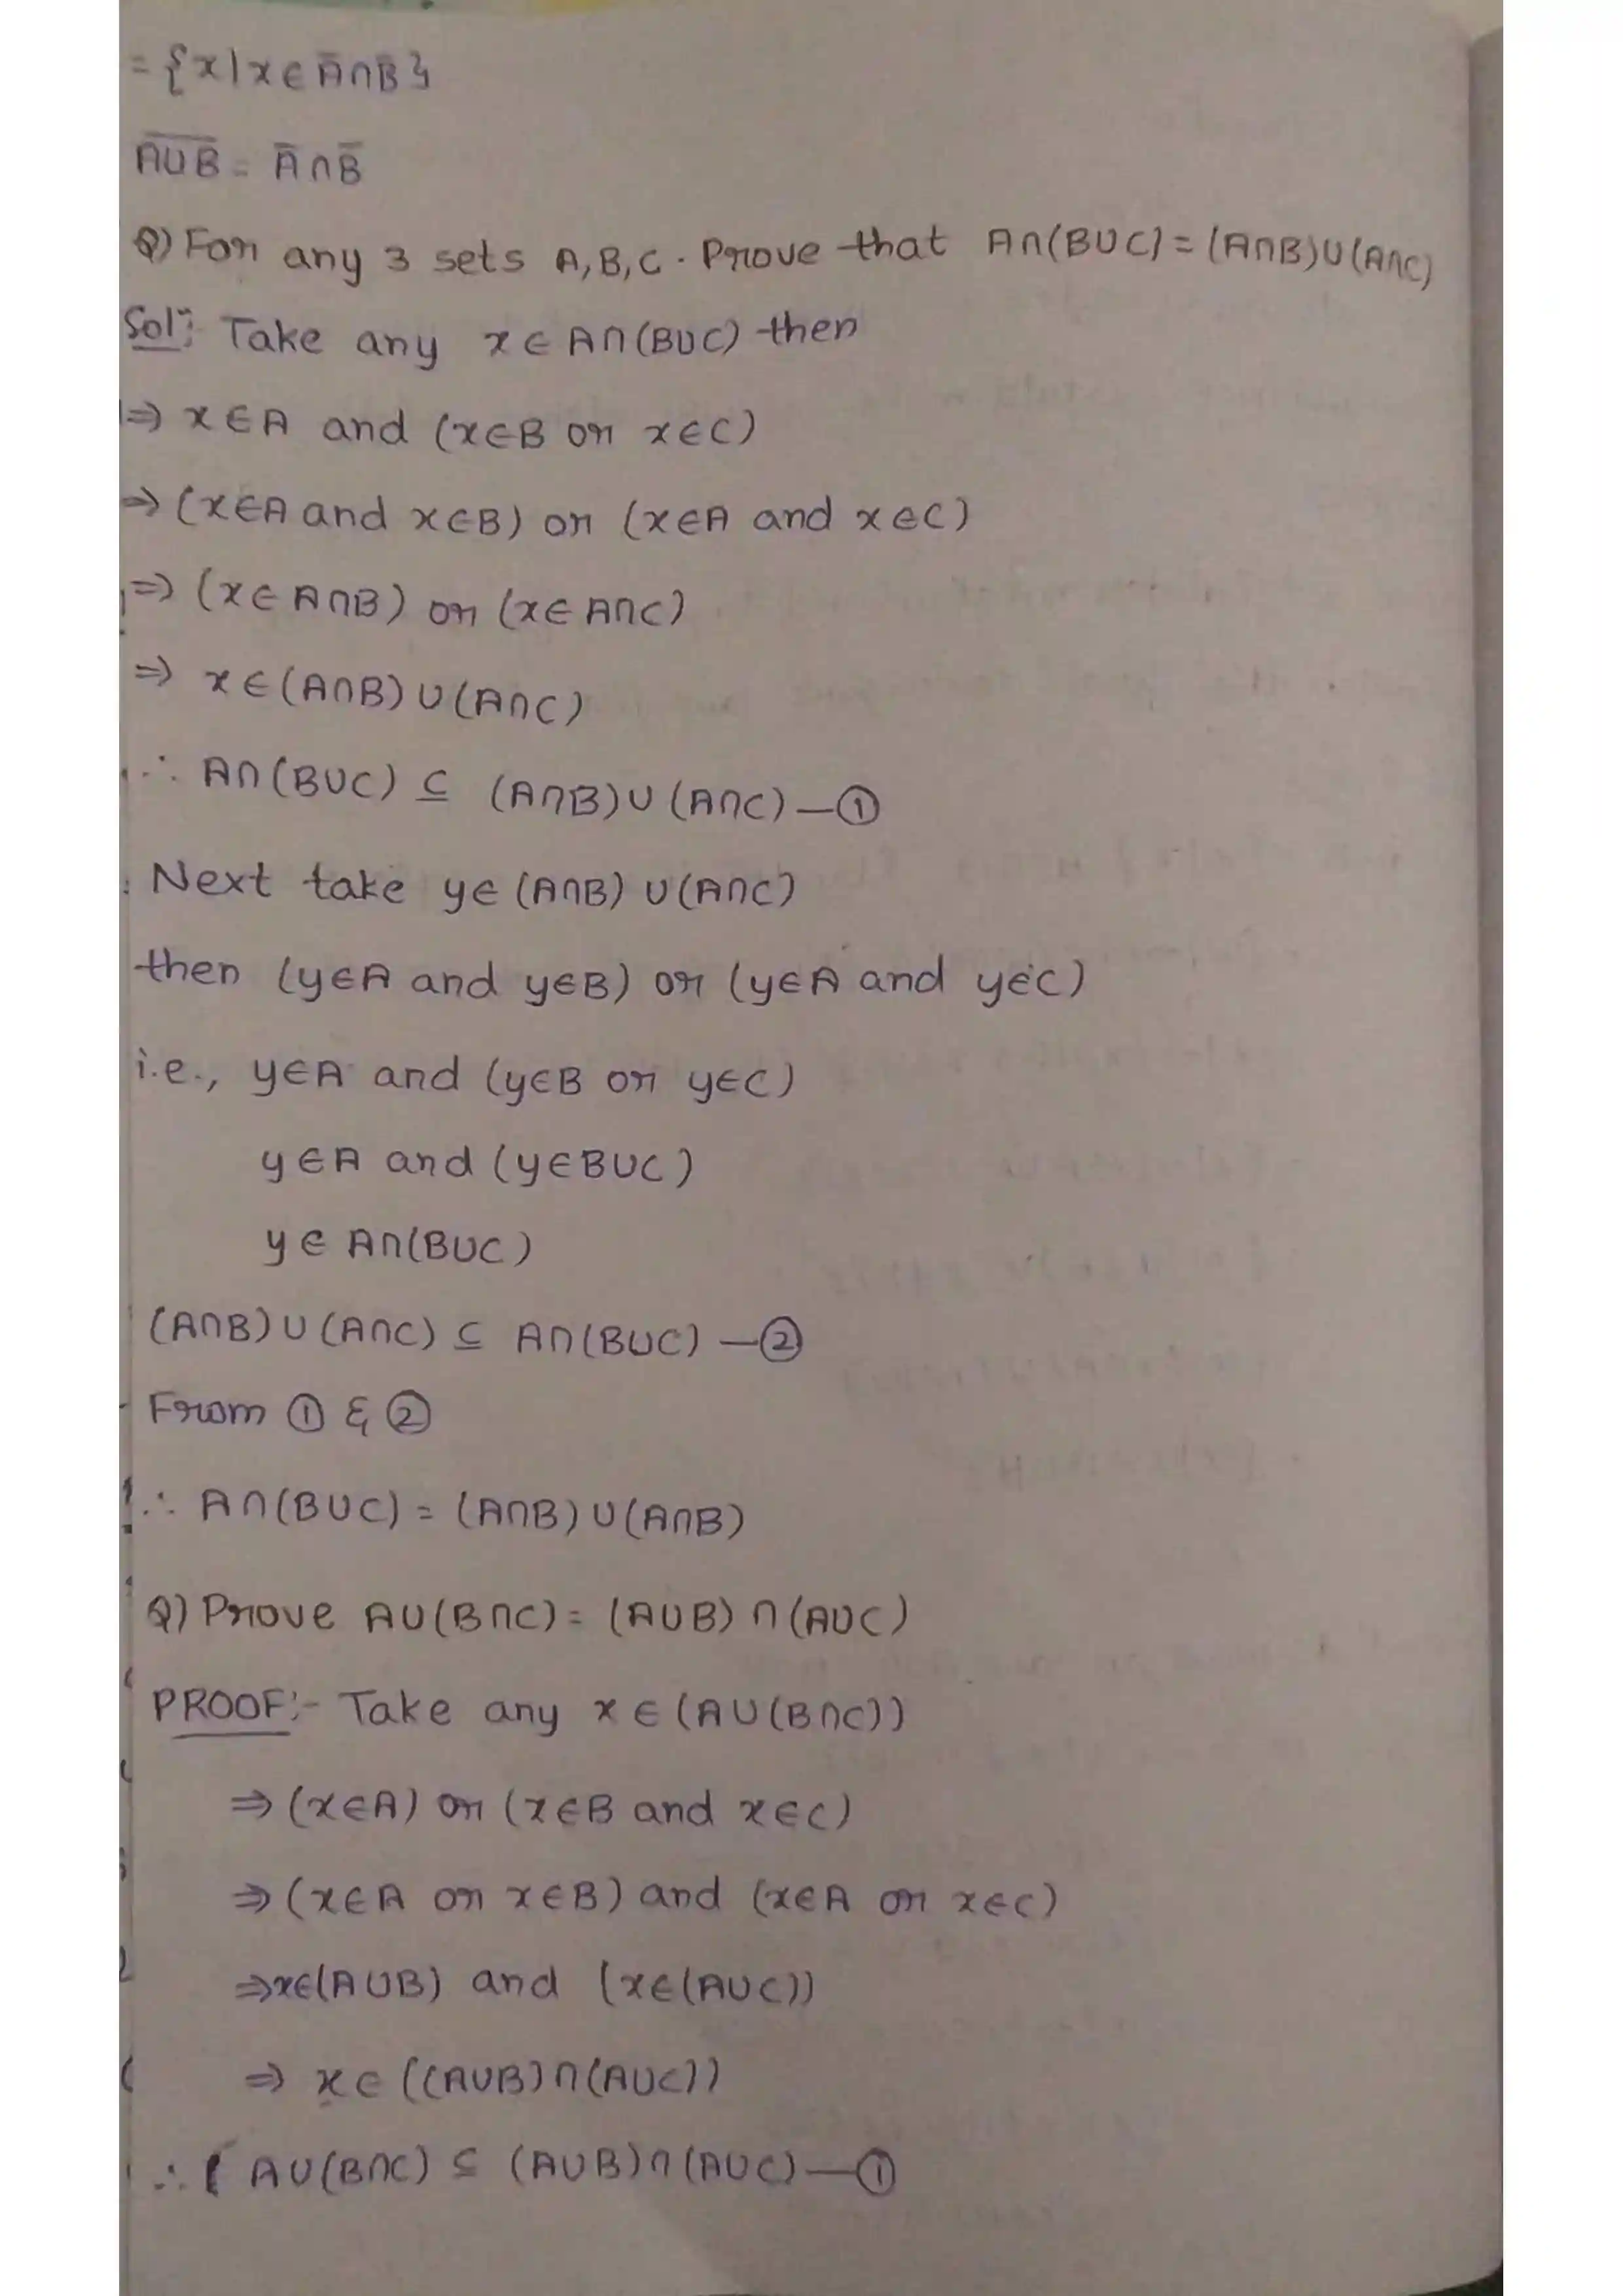 = {x | x ∈ A̅∩B̅}
A̅U̅B̅ = A̅ ∩ B̅
Q) For any 3 sets A, B, C. Prove that A∩(BUC) = (A∩B)U(A∩C)
Sol:- Take any x ∈ A∩(BUC) then
⇒ x ∈ A and (x∈B or x∈C)
⇒ (x∈A and x∈B) or (x∈A and x∈C)
⇒ (x∈A∩B) or (x∈A∩C)
⇒ x∈(A∩B)U(A∩C)
∴ A∩(BUC) ⊆ (A∩B)U(A∩C) — ①
Next take y∈(A∩B)U(A∩C)
then (y∈A and y∈B) or (y∈A and y∈C)
i.e., y∈A and (y∈B or y∈C)
y∈A and (y∈BUC)
y∈A∩(BUC)
(A∩B)U(A∩C) ⊆ A∩(BUC) — ②
From ① & ②
∴ A∩(BUC) = (A∩B)U(A∩B)
Q) Prove AU(B∩C) = (AUB)∩(AUC)
PROOF:- Take any x∈(AU(B∩C))
⇒ (x∈A) or (x∈B and x∈C)
⇒ (x∈A or x∈B) and (x∈A or x∈C)
⇒ x∈(AUB) and (x∈(AUC))
⇒ x∈((AUB)∩(AUC))
∴ AU(B∩C) ⊆ (AUB)∩(AUC) — ①